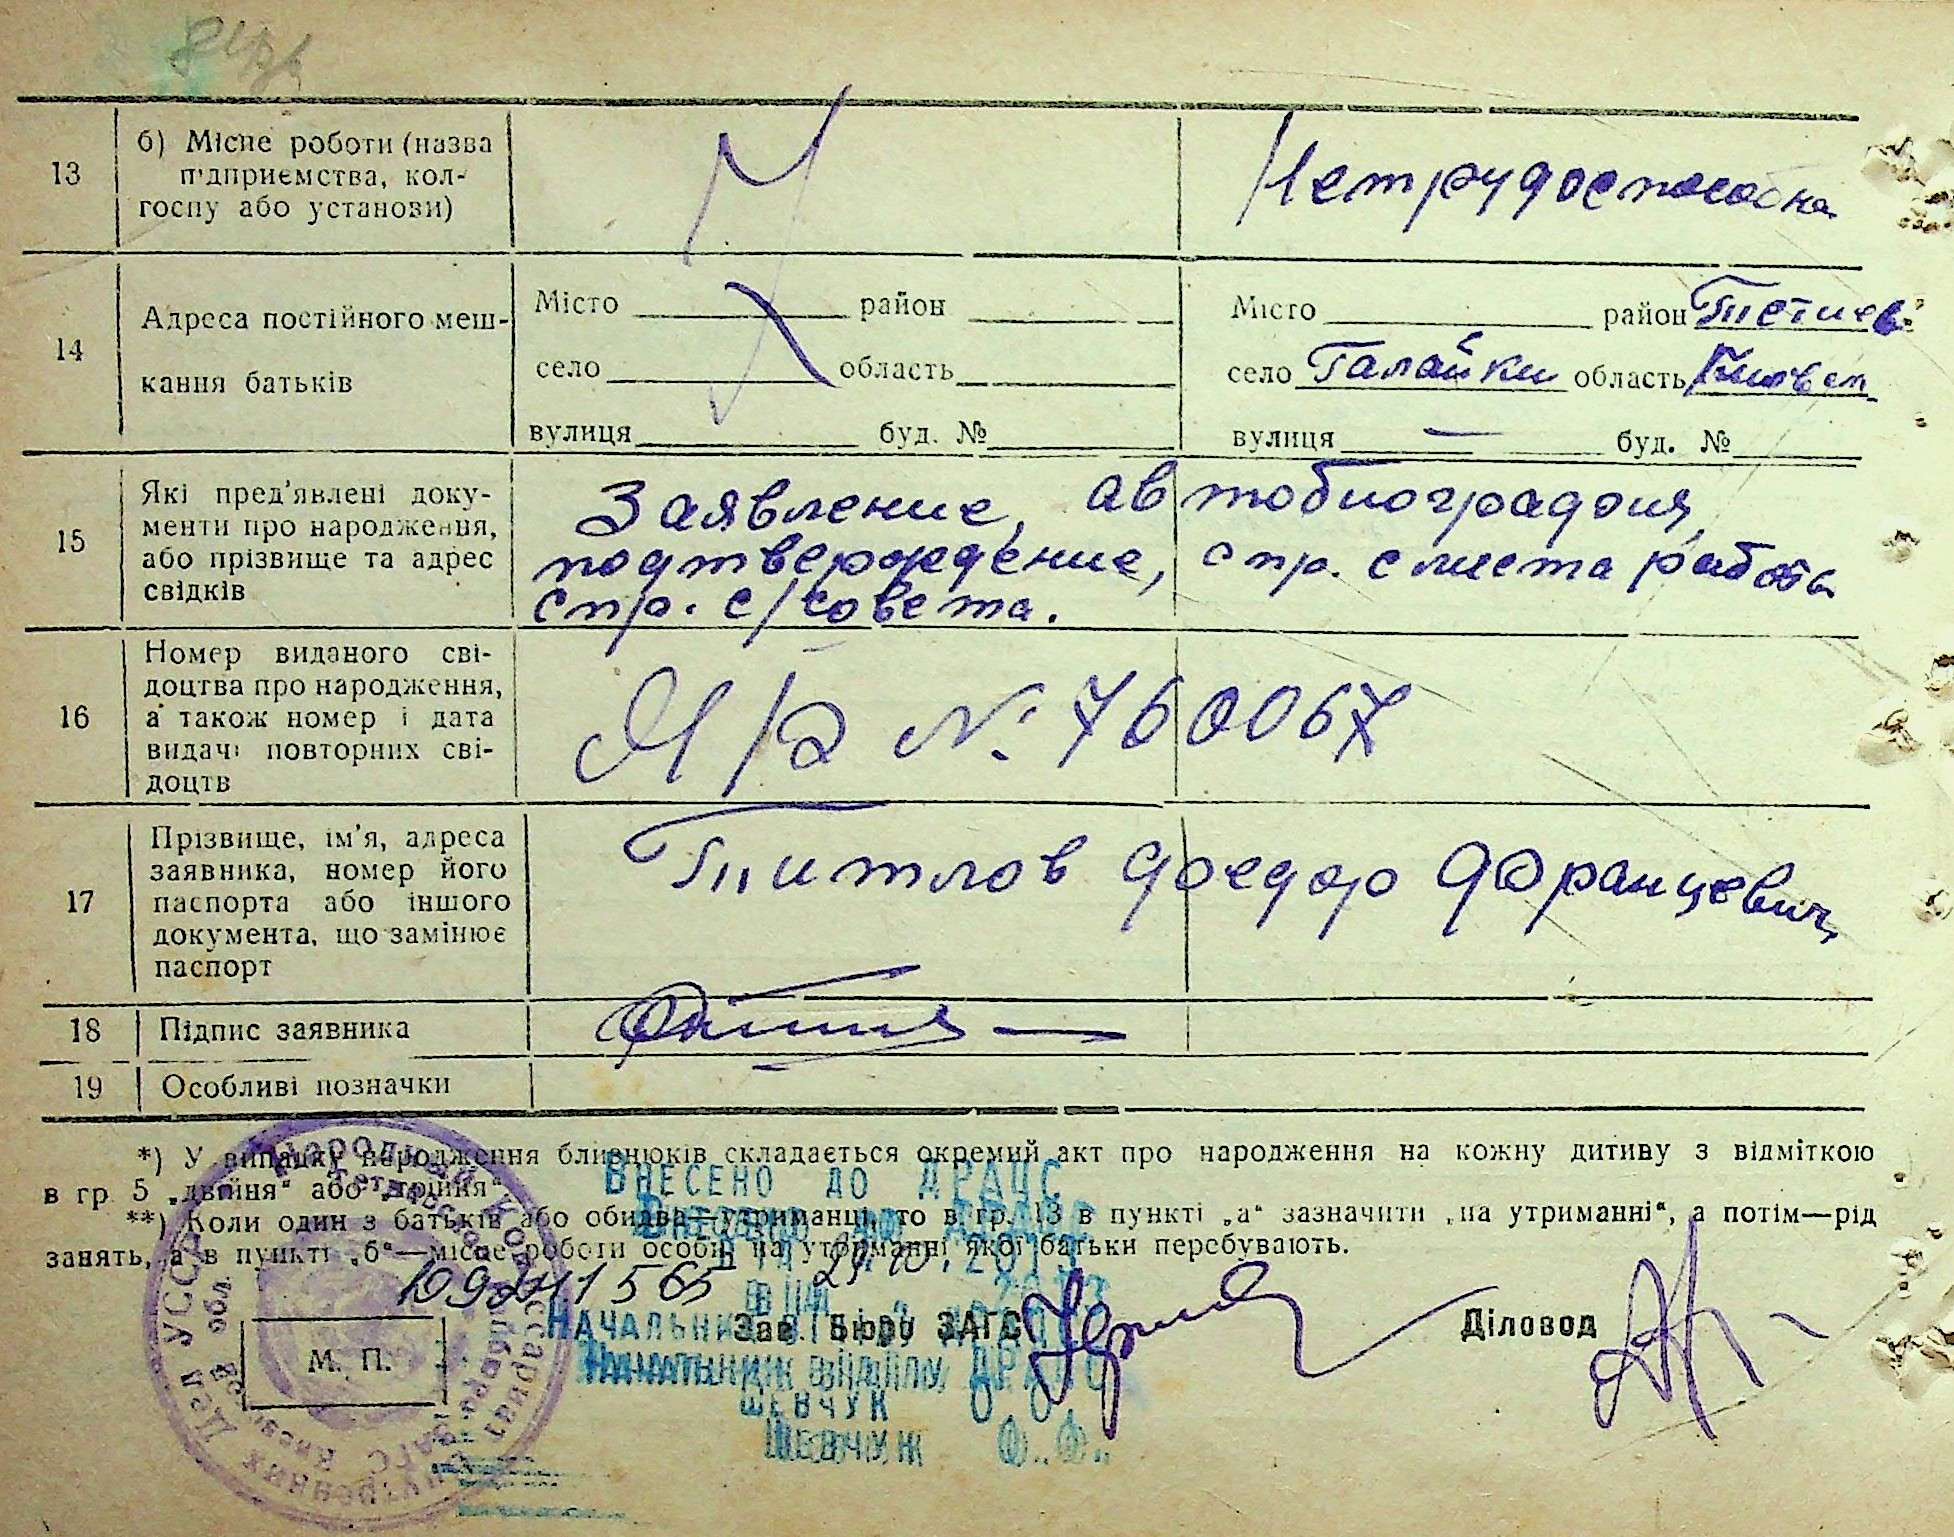 13
б) Місце роботи (назва
підприємства, кол-
госпу або установи)
Нетрудоспособна
14
Адреса постійного меш-
кання батьків
Місто район
село область
вулиця буд. №
Місто район Тетиев.
село Галайки область Киевск
вулиця — буд. №
15
Які пред'явлені доку-
менти про народження,
або прізвище та адрес
свідків
Заявление, автобиография,
подтверждение, спр. с места работы
спр. с/совета.
16
Номер виданого сві-
доцтва про народження,
а також номер і дата
видачі повторних сві-
доцтв
№ 760067
17
Прізвище, ім'я, адреса
заявника, номер його
паспорта або іншого
документа, що замінює
паспорт
Титлов Федор Францевич
18
Підпис заявника
19
Особливі позначки
*) У випадку народження близнюків складається окремий акт про народження на кожну дитину з відміткою
в гр 5 „двійня“ або „трійня“
**) Коли один з батьків або обидва—утриманці, то в гр. 13 в пункті „а“ зазначити „на утриманні“, а потім—рід
занять, а в пункті „б“—місце роботи особи, на утриманні якої батьки перебувають.
Внесено до ДРАЦС
Зав. Бюро ЗАГС
Діловод
М. П.
Начальник відділу ДРАЦС
Шевчук О.О.